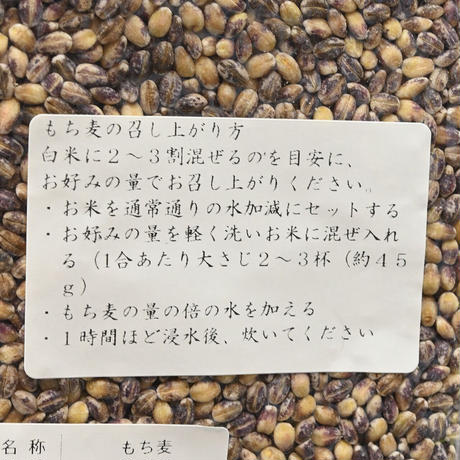 もち麦の召し上がり方
白米に２～３割混ぜるのを目安に、
お好みの量でお召し上がりください。
・お米を通常通りの水加減にセットする
・お好みの量を軽く洗いお米に混ぜ入れ
る（1合あたり大さじ２～３杯（約４５
g）
・もち麦の量の倍の水を加える
・１時間ほど浸水後、炊いてください
名称 もち麦